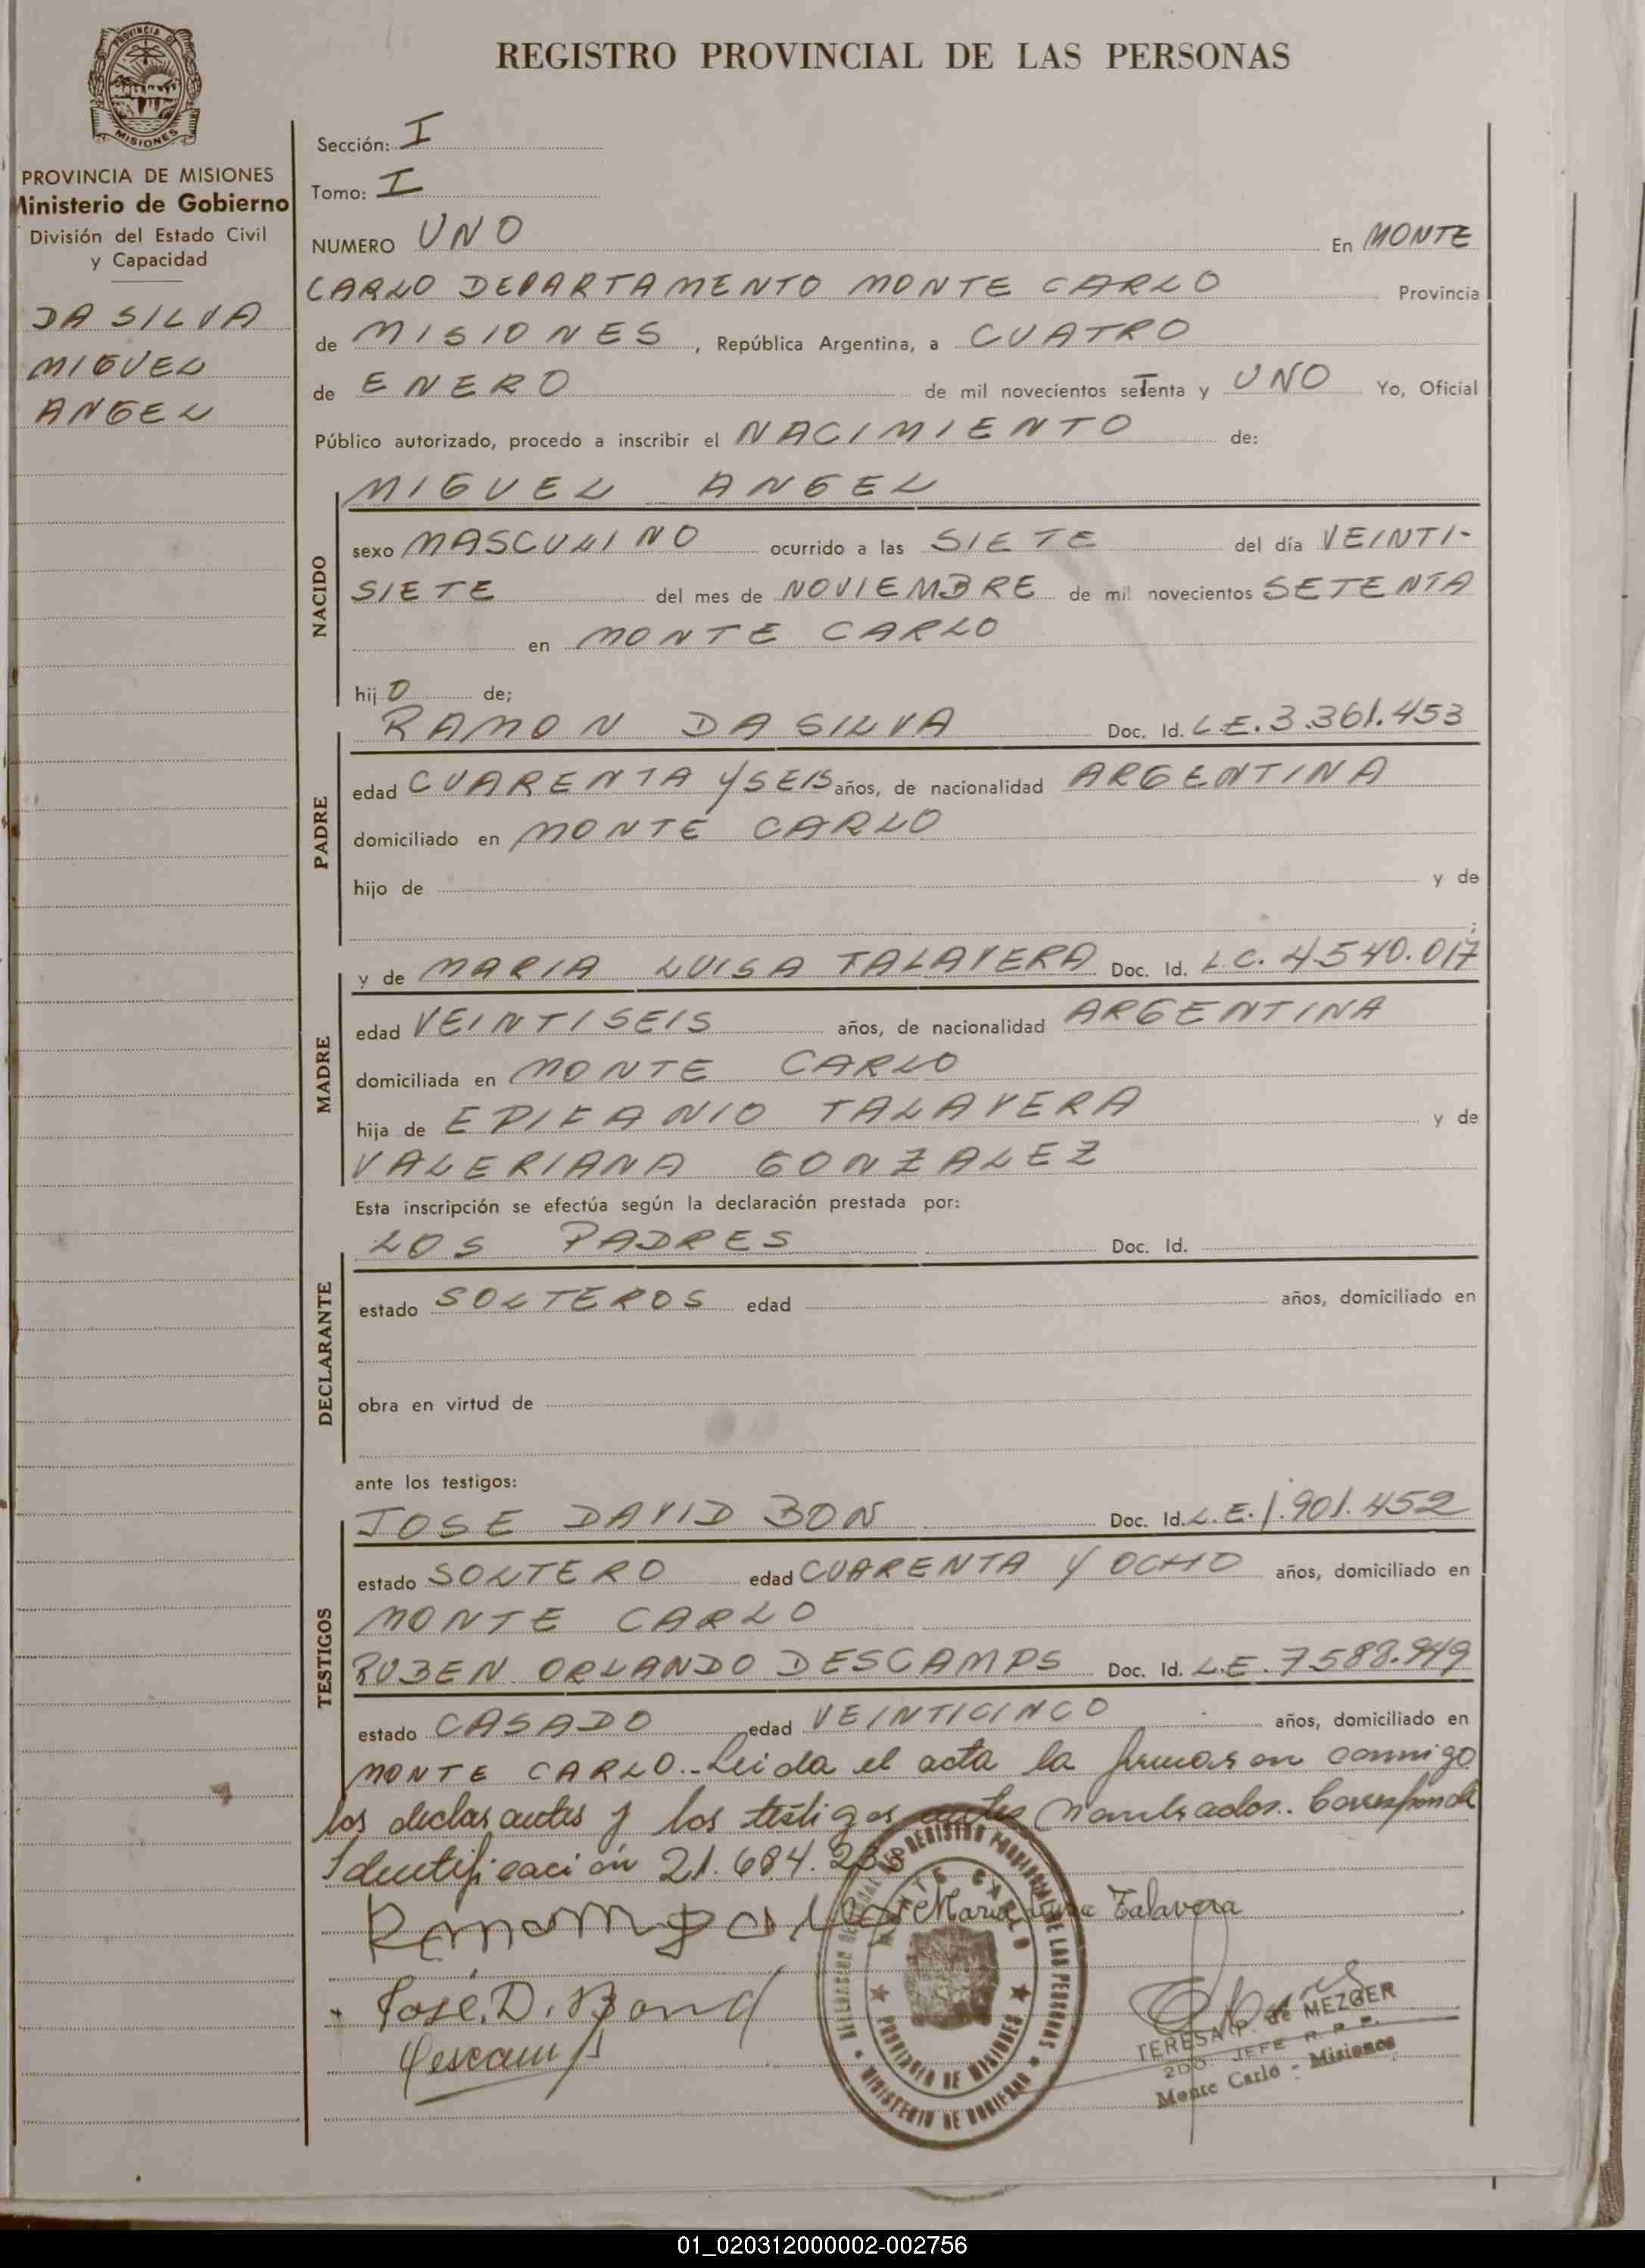 REGISTRO PROVINCIAL DE LAS PERSONAS
PROVINCIA DE
MISIONES
PROVINCIA DE MISIONES
Ministerio de Gobierno
División del Estado Civil
y Capacidad
DA SILVA
MIGUEL
ANGEL
Sección: I
Tomo: I
NUMERO UNO En MONTE
CARLO DEPARTAMENTO MONTE CARLO Provincia
de MISIONES, República Argentina, a CUATRO
de ENERO de mil novecientos setenta y UNO Yo, Oficial
Público autorizado, procedo a inscribir el NACIMIENTO de:
NACIDO
MIGUEL ANGEL
sexo MASCULINO ocurrido a las SIETE del día VEINTI-
SIETE del mes de NOVIEMBRE de mil novecientos SETENTA
en MONTE CARLO
hij O de;
PADRE
RAMON DA SILVA Doc. Id. L.E. 3.361.453
edad CUARENTA Y SEIS años, de nacionalidad ARGENTINA
domiciliado en MONTE CARLO
hijo de y de
;
MADRE
y de MARIA LUISA TALAVERA Doc. Id. L.C. 4.540.017
edad VEINTISEIS años, de nacionalidad ARGENTINA
domiciliada en MONTE CARLO
hija de EPIFANIO TALAVERA y de
VALERIANA GONZALEZ
Esta inscripción se efectúa según la declaración prestada por:
DECLARANTE
LOS PADRES Doc. Id.
estado SOLTEROS edad años, domiciliado en
obra en virtud de
ante los testigos:
TESTIGOS
JOSE DAVID BON Doc. Id. L.E. 1.901.452
estado SOLTERO edad CUARENTA Y OCHO años, domiciliado en
MONTE CARLO
RUBEN ORLANDO DESCAMPS Doc. Id. L.E. 7.588.949
estado CASADO edad VEINTICINCO años, domiciliado en
MONTE CARLO.- Leida el acta la firmaron conmigo
los declarantes y los testigos antes nombrados. Corresponde
Identificación 21.684.
Maria Talavera
José. D. Bond
Descamps
REGISTRO PROVINCIAL DE LAS PERSONAS
MONTE CARLO
PROVINCIA DE MISIONES
MINISTERIO DE GOBIERNO
TERESA P. de MEZGER
2DO JEFE R. P. P.
Monte Carlo - Misiones
01_020312000002-002756